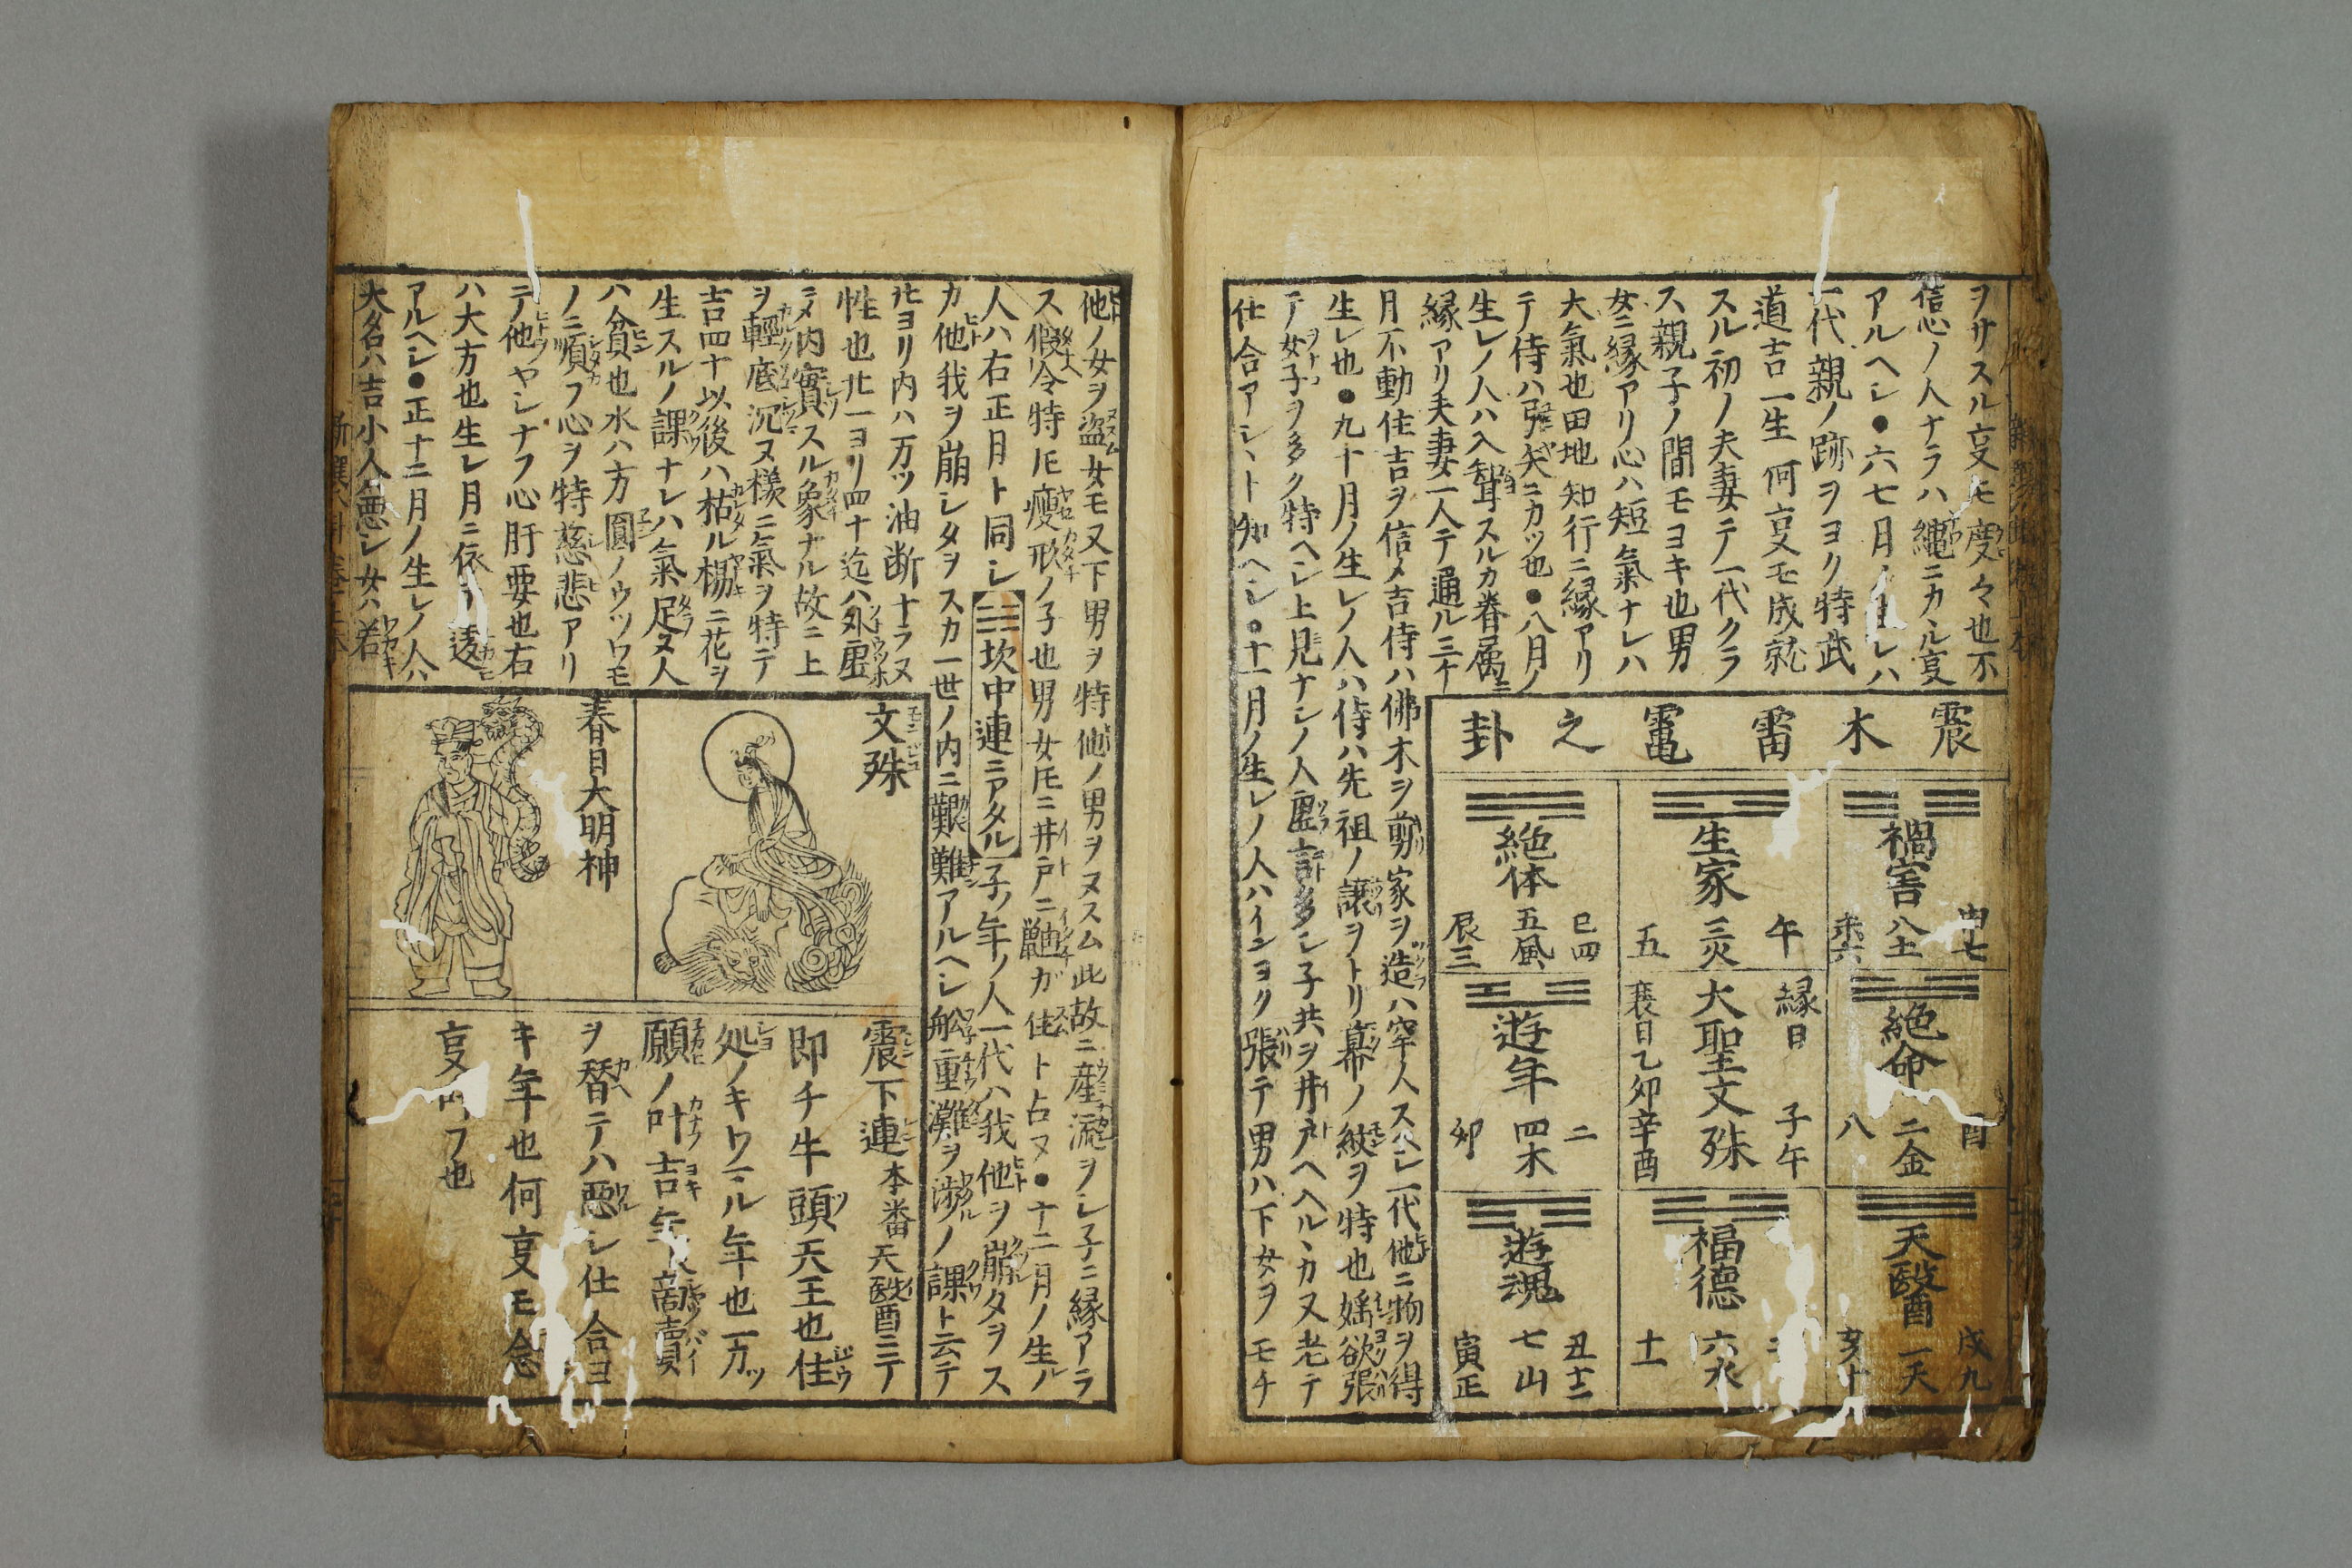 ヲサスル㕝モ度々也不
信心ノ人ナラハ縄ニカヽル㕝
アルヘシ●六七月ノ生レハ
一代親ノ跡ヲヨク特武
道吉一生何㕝モ成就
スル初ノ夫妻テハ一代クラ
ス親子ノ間モヨキ也男
女ニ縁アリ心ハ短氣ナレハ
大氣也田地知行ニ縁アリ
テ侍ハ弓矢ニカツ也●八月ノ
生レノ人ハ入聟スルカ眷属ニ
縁アリ夫妻一人テ通ル三十
月不動住吉ヲ信メ吉侍ハ佛木ヲ剪家ヲ造ハ窂人スヘシ一代他ニ物ヲ得
生レ也●九十月ノ生レノ人ハ侍ハ先祖ノ讓ヲトリ幕ノ紋ヲ特也婬欲張
テ女子ヲ多ク特ヘシ上見ナシノ人虚言多シ子共ヲ井戸ヘヘルヽカ又老テ
仕合アシヽト知ヘシ●十一月ノ生レノ人ハインヨク張テ男ハ下女ヲモチ
震木雷電之卦
禍害
申七
八土
未六
絶命
酉
二金
八
天醫
戌九
一天
亥十
生家
午
三火
五
縁日
子午
大聖文殊
衰日乙卯辛酉
福德
六水
十一
絶体
巳四
五風
辰三
遊年
二
四木
卯
遊魂
丑十二
七山
寅正
他ノ女ヲ盗女モ又下男ヲ特他ノ男ヲヌスム此故ニ産漩ヲシ子ニ縁アラ
ス假令特𪜈瘦形ノ子也男女𪜈ニ井戸ニ鼬ガ住ト占ヌ●十二月ノ生ル
人ハ右正月ト同シ☵坎中連ニアタル子ノ年ノ人一代ハ我他ヲ崩タヲス
カ他我ヲ崩シタヲスカ一世ノ内ニ艱難アルヘシ舩ニ重灘ヲ渉ルノ課ト云テ
北ヨリ内ハ万ツ油断ナラヌ
性也北一ヨリ四十迄ハ外虚
ニメ内實スル象ナル故ニ上
ヲ輕底沉ヌ様ニ氣ヲ特テ
吉四十以後ハ枯ル楊ニ花ヲ
生スルノ課ナレハ氣足ヌ人
ハ貧也水ハ方圓ノウツワモ
ノニ順フ心ヲ特慈悲アリ
テ他ヲヤシナフ心肝要也右
ハ大方也生レ月ニ依テ
アルヘシ●正十二月ノ生レノ人ハ
大名ハ吉小人ハ悪シ女ハ若
文殊
春日大明神
震下連本番天醫ニテ
即チ牛頭天王也住
処ノキワマル年也万ツ
願ノ叶吉年
ヲ替テハ悪シ仕合ヨ
キ年也何㕝モ念
㕝叶フ也